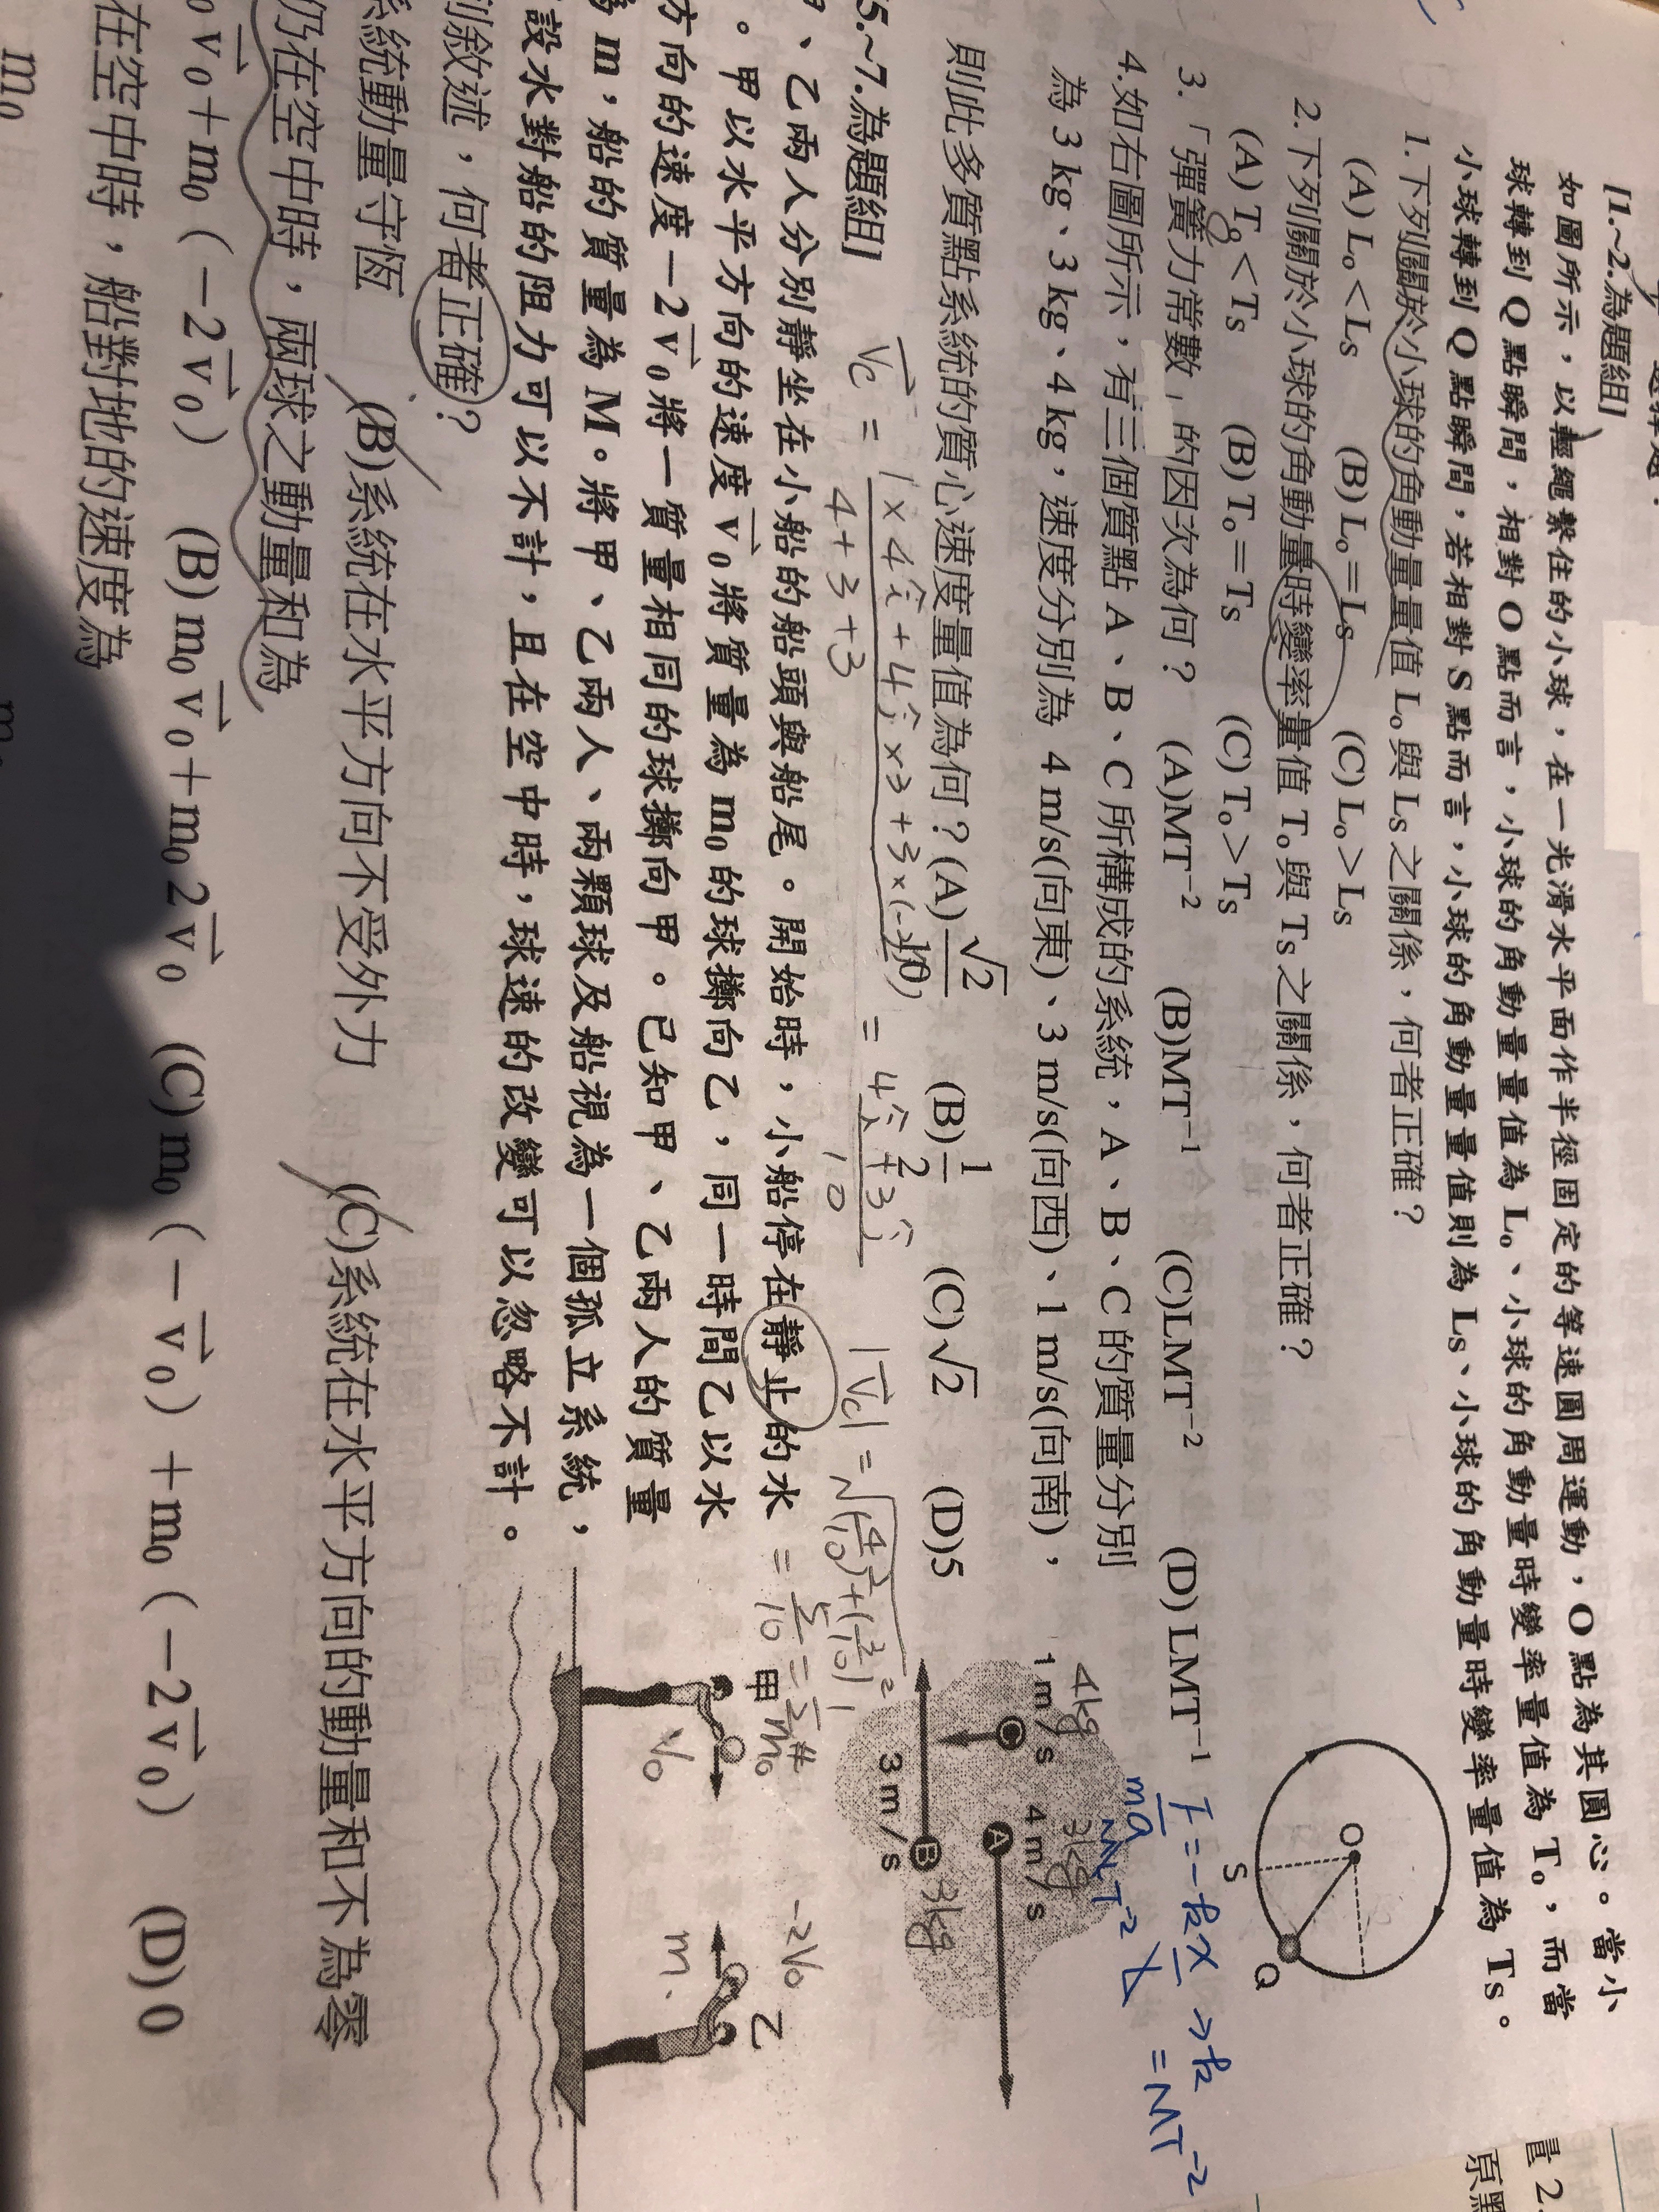 [1.~2.為題組]
如圖所示，以輕繩繫住的小球，在一光滑水平面作半徑固定的等速圓周運動，O 點為其圓心。當小
球轉到 Q 點瞬間，相對 O 點而言，小球的角動量量值為 Lₒ、小球的角動量時變率量值為 Tₒ，而當
小球轉到 Q 點瞬間，若相對 S 點而言，小球的角動量量值則為 Ls、小球的角動量時變率量值為 Ts。
1.下列關於小球的角動量量值 Lₒ 與 Ls 之關係，何者正確？
(A) Lₒ＜Ls (B) Lₒ＝Ls (C) Lₒ＞Ls
2.下列關於小球的角動量時變率量值 Tₒ 與 Ts 之關係，何者正確？
(A) Tₒ＜Ts (B) Tₒ＝Ts (C) Tₒ＞Ts
O
S
Q
3.「彈簧力常數」的因次為何？ (A)MT⁻² (B)MT⁻¹ (C)LMT⁻² (D) LMT⁻¹
F=-kx
ma
=MT⁻²
4.如右圖所示，有三個質點 A、B、C 所構成的系統，A、B、C 的質量分別
為 3 kg、3 kg、4 kg，速度分別為 4 m/s(向東)、3 m/s(向西)、1 m/s(向南)，
則此多質點系統的質心速度量值為何？(A) √2/2 (B) 1/2 (C) √2 (D)5
4kg
3kg
1 m/s
4 m/s
C
A
B
3kg
3 m/s
4+3+3
[5.~7.為題組]
、乙兩人分別靜坐在小船的船頭與船尾。開始時，小船停在靜止的水
。甲以水平方向的速度 v⃗₀ 將質量為 m₀ 的球擲向乙，同一時間乙以水
方向的速度 －2v⃗₀ 將一質量相同的球擲向甲。已知甲、乙兩人的質量
m，船的質量為 M。將甲、乙兩人、兩顆球及船視為一個孤立系統，
設水對船的阻力可以不計，且在空中時，球速的改變可以忽略不計。
甲
m₀
V₀
-2V₀
乙
m
敘述，何者正確？
系統動量守恆 (B)系統在水平方向不受外力 (C)系統在水平方向的動量和不為零
仍在空中時，兩球之動量和為
v⃗₀＋m₀（－2v⃗₀） (B) m₀v⃗₀＋m₀2v⃗₀ (C) m₀（－v⃗₀）＋m₀（－2v⃗₀） (D) 0
在空中時，船對地的速度為
m₀